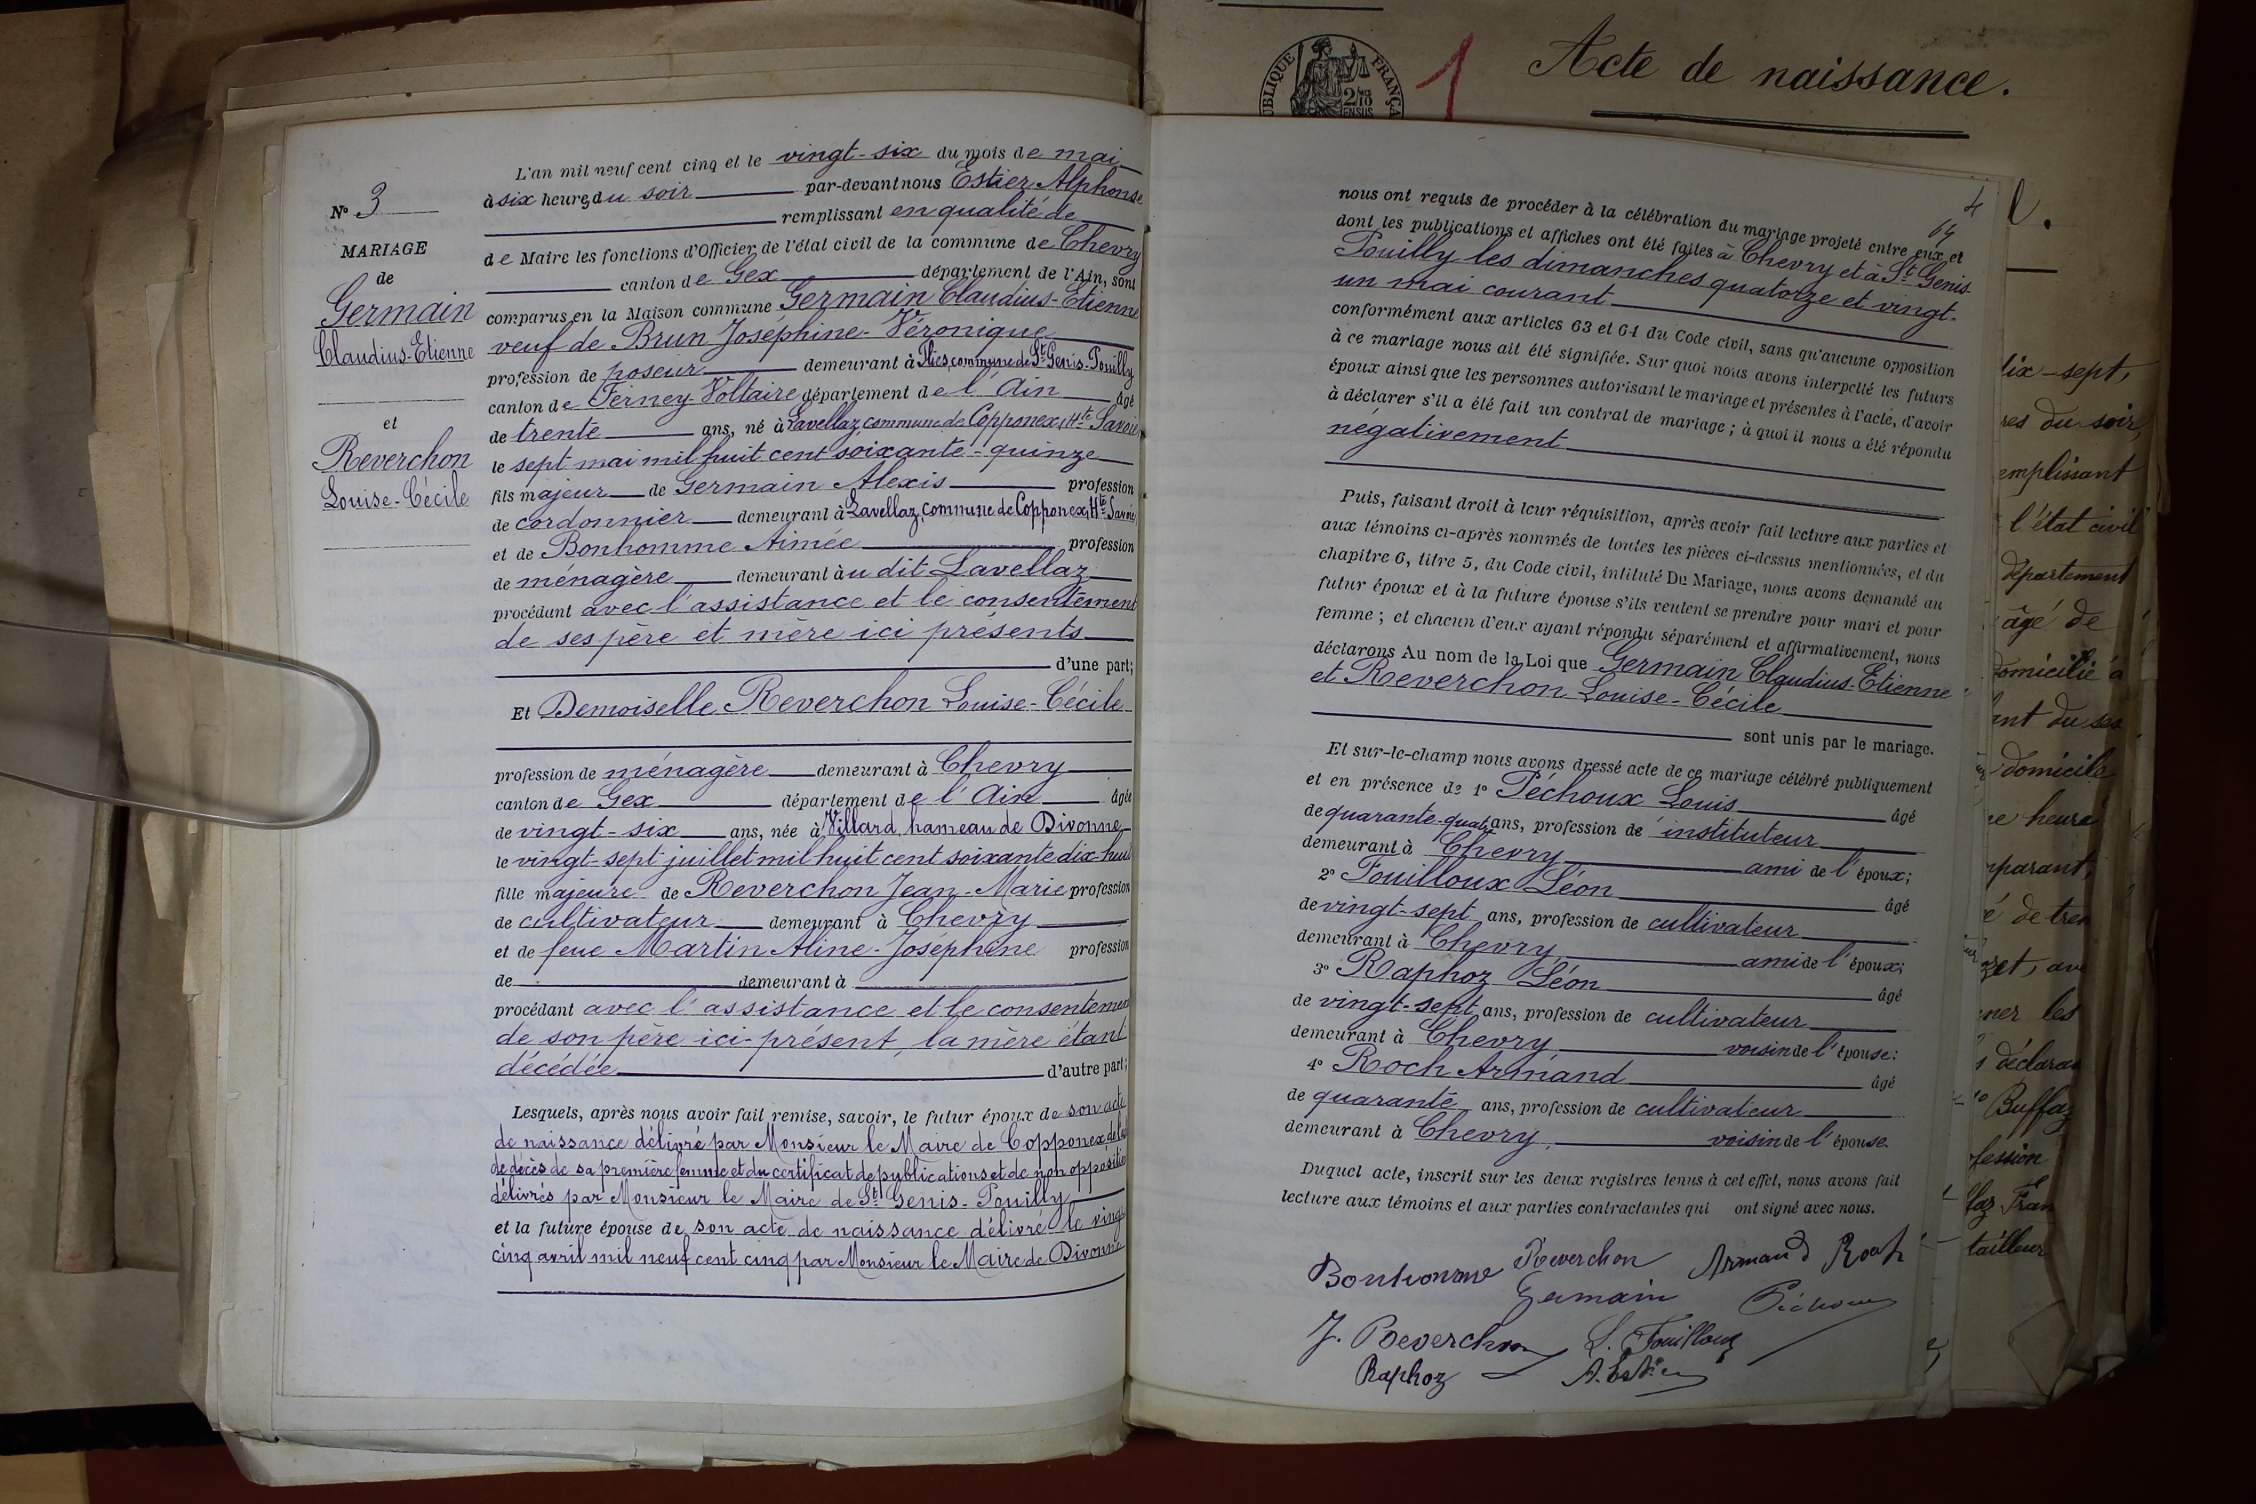 N° 3
MARIAGE
de
Germain
Claudius-Etienne
et
Reverchon
Louise-Cécile
L'an mil neuf cent cinq et le vingt-six du mois de mai
à six heures du soir par-devant nous Estier Alphonse
remplissant en qualité de
de Maire les fonctions d'Officier de l'état civil de la commune de Chevry
canton de Gex département de l'Ain, sont
comparus en la Maison commune Germain Claudius-Etienne
veuf de Brun Joséphine-Véronique
profession de poseur demeurant à Flies, commune de St Genis-Pouilly
canton de Ferney-Voltaire département de l'Ain âgé
de trente ans, né à Lavellaz, commune de Copponex, Hte Savoie
le sept mai mil huit cent soixante-quinze
fils majeur de Germain Alexis profession
de cordonnier demeurant à Lavellaz, commune de Copponex, Hte Savoie
et de Bonhomme Aimée profession
de ménagère demeurant àu dit Lavellaz
procédant avec l'assistance et le consentement
de ses père et mère ici présents
d'une part;
Et Demoiselle Reverchon Louise-Cécile
profession de ménagère demeurant à Chevry
canton de Gex département de l'Ain âgée
de vingt-six ans, née à Villard, hameau de Divonne
le vingt-sept juillet mil huit cent soixante dix-huit
fille majeure de Reverchon Jean-Marie profession
de cultivateur demeurant à Chevry
et de feue Martin Aline-Joséphine profession
de demeurant à
procédant avec l'assistance et le consentement
de son père ici-présent, la mère étant
décédée d'autre part;
Lesquels, après nous avoir fait remise, savoir, le futur époux de son acte
de naissance délivré par Monsieur le Maire de Copponex, de
de décès de sa première femme et du certificat de publications et de non opposition
délivrés par Monsieur le Maire de St Genis-Pouilly
et la future épouse de son acte de naissance délivré le vingt
cinq avril mil neuf cent cinq par Monsieur le Maire de Divonne
4
64
nous ont requis de procéder à la célébration du mariage projeté entre eux et
dont les publications et affiches ont été faites à Chevry et à St Genis
Pouilly les dimanches quatorze et vingt-
un mai courant
conformément aux articles 63 et 64 du Code civil, sans qu'aucune opposition
à ce mariage nous ait été signifiée. Sur quoi nous avons interpellé les futurs
époux ainsi que les personnes autorisant le mariage et présentes à l'acte, d'avoir
à déclarer s'il a été fait un contrat de mariage; à quoi il nous a été répondu
négativement
Puis, faisant droit à leur réquisition, après avoir fait lecture aux parties et
aux témoins ci-après nommés de toutes les pièces ci-dessus mentionnées, et du
chapitre 6, titre 5, du Code civil, intitulé Du Mariage, nous avons demandé au
futur époux et à la future épouse s'ils veulent se prendre pour mari et pour
femme; et chacun d'eux ayant répondu séparément et affirmativement, nous
déclarons Au nom de la Loi que Germain Claudius-Etienne
et Reverchon Louise-Cécile
sont unis par le mariage.
Et sur-le-champ nous avons dressé acte de ce mariage célébré publiquement
et en présence de 1° Péchoux Louis âgé
de quarante-quatre ans, profession de instituteur
demeurant à Chevry ami de l'époux;
2° Fouilloux Léon âgé
de vingt-sept ans, profession de cultivateur
demeurant à Chevry ami de l'époux;
3° Raphoz Léon âgé
de vingt-sept ans, profession de cultivateur
demeurant à Chevry voisin de l'épouse:
4° Roch Armand âgé
de quarante ans, profession de cultivateur
demeurant à Chevry, voisin de l'épouse.
Duquel acte, inscrit sur les deux registres tenus à cet effet, nous avons fait
lecture aux témoins et aux parties contractantes qui ont signé avec nous.
Bonhomme Reverchon Armand Roch
Germain Péchoux
J. Reverchon L. Fouilloux
Raphoz A. Estier
BLIQUE FRANÇA
1
Acte de naissance.
dix-sept,
res du soir,
emplissant
l'état civil
département
âgé de
domicilié à
domicile
ne heure
mparant,
é de tren
ner les
déclaran
Buffaz
fession
faz Fran
tailleur